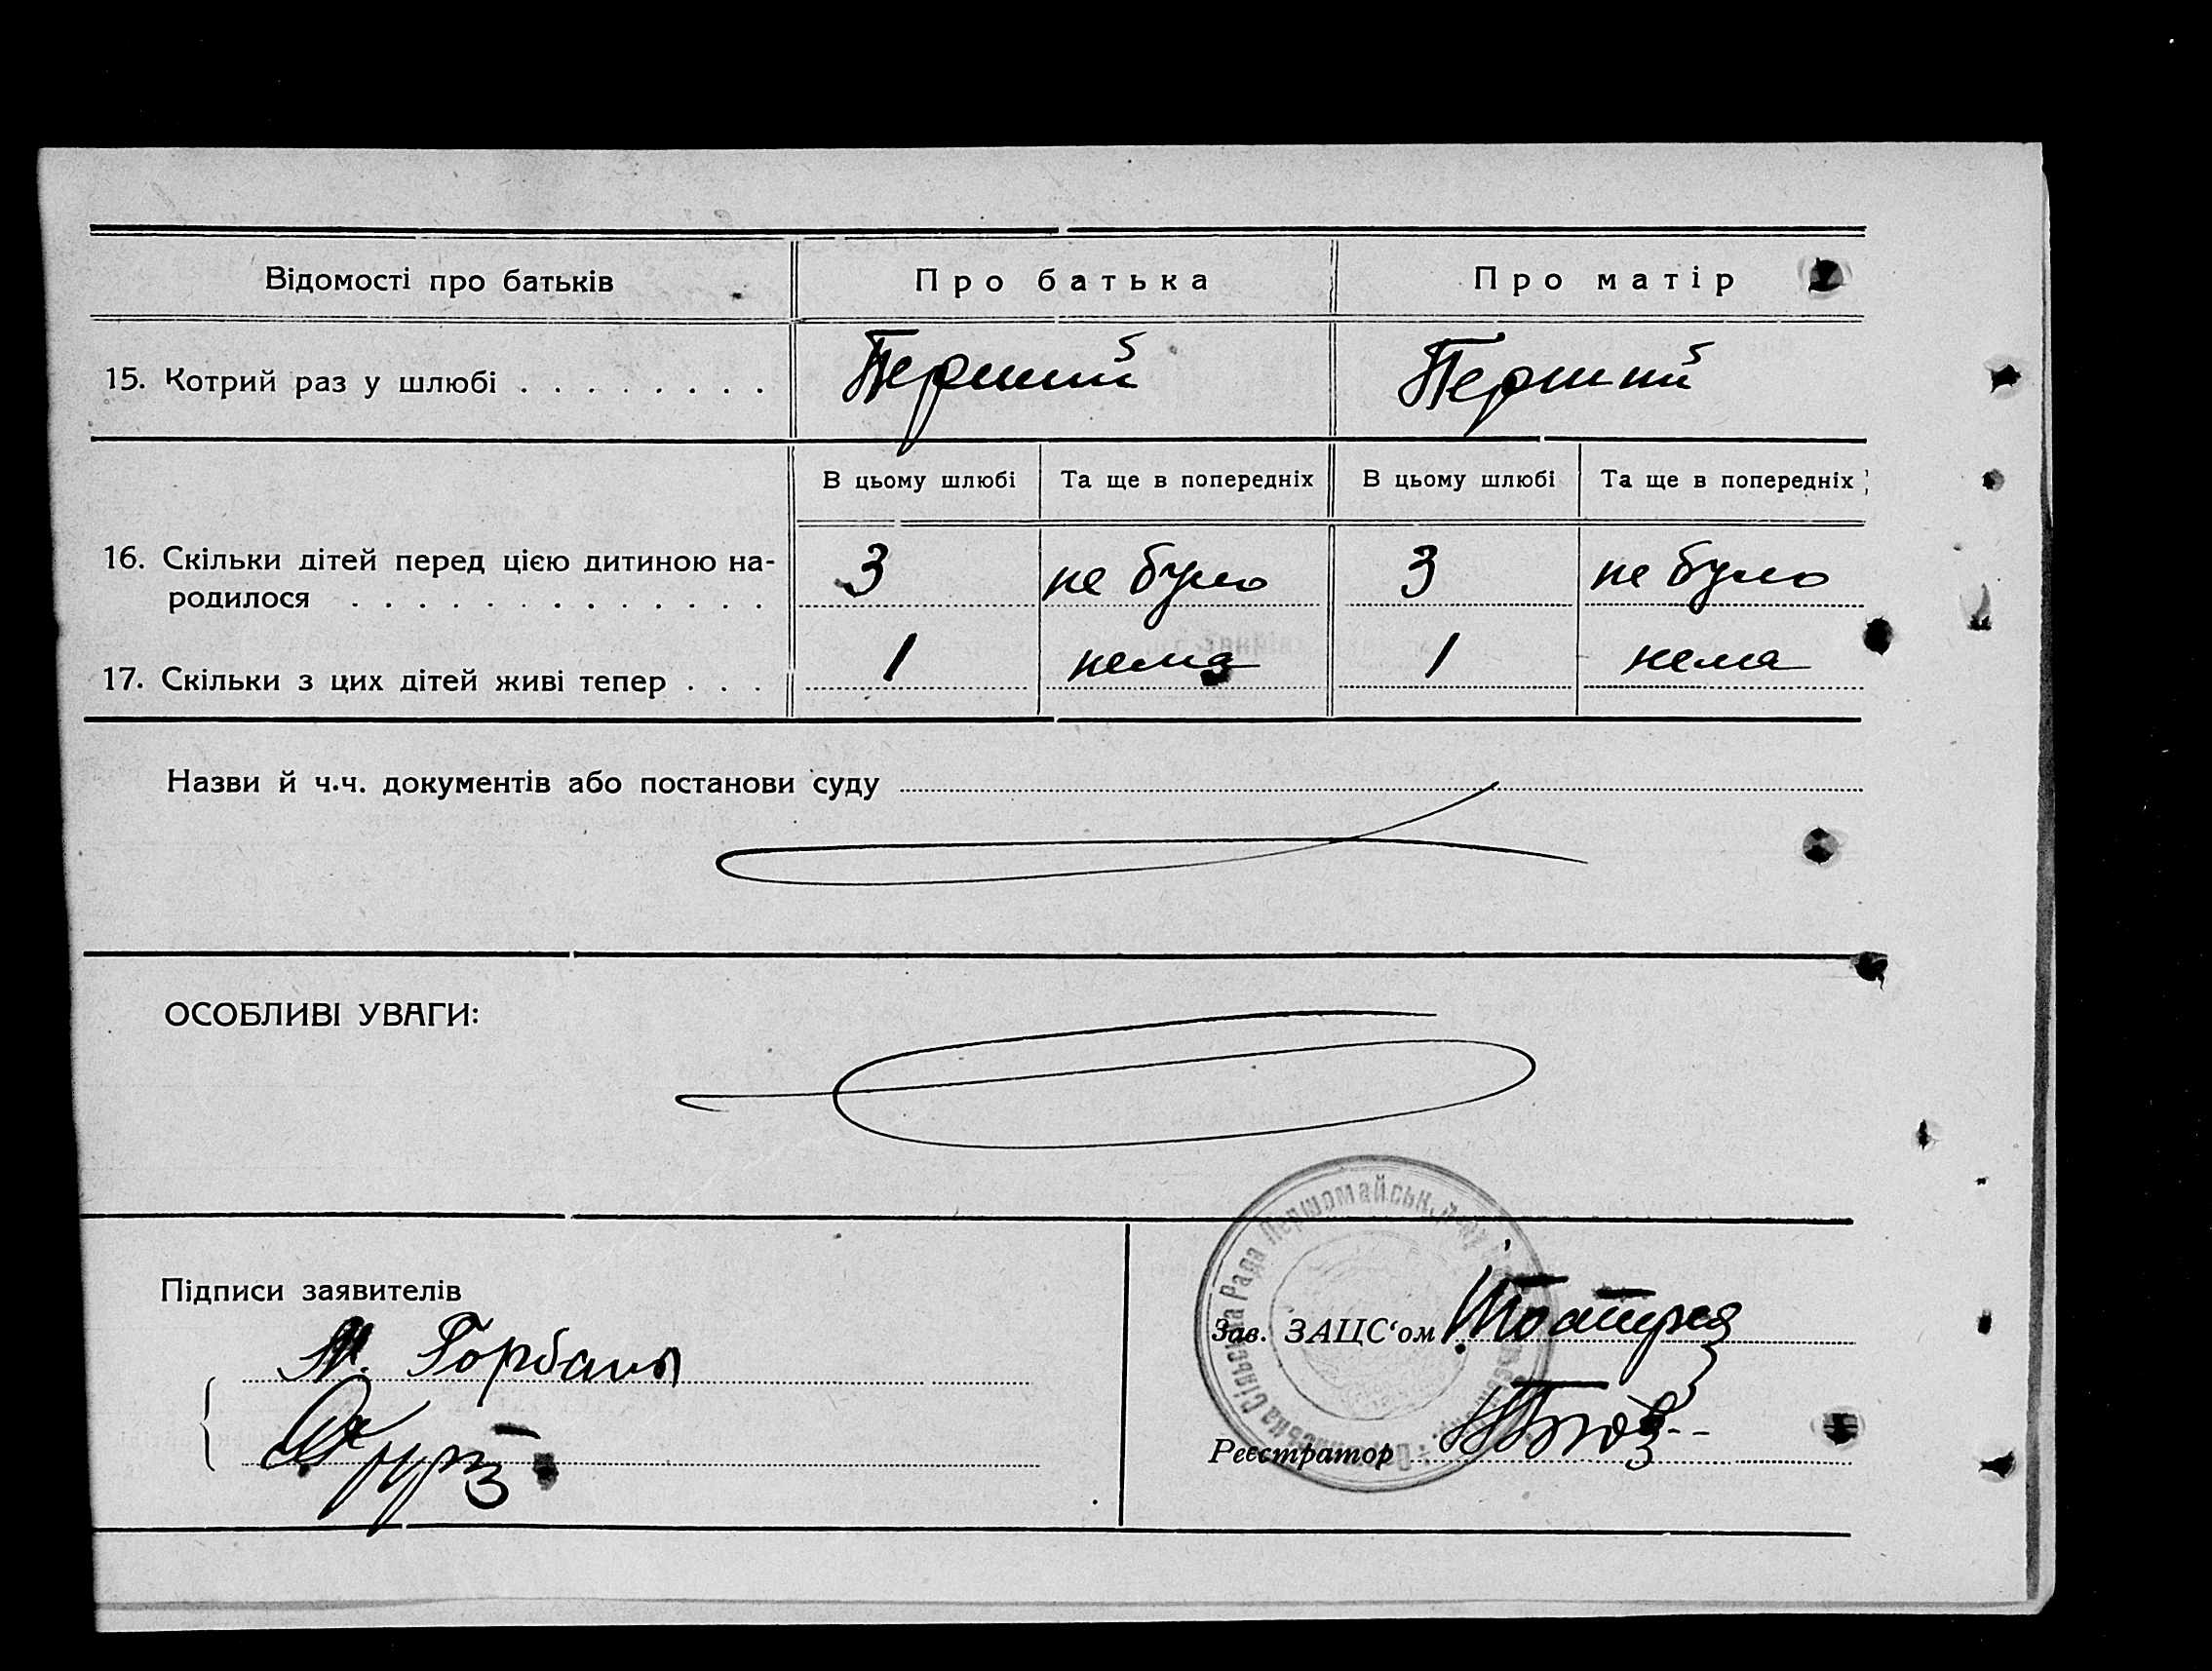 Відомості про батьків
Про батька
Про матір
15. Котрий раз у шлюбі . . . . . . . .
Перший
Перший
В цьому шлюбі
Та ще в попередніх
В цьому шлюбі
Та ще в попередніх
16. Скільки дітей перед цією дитиною на-
родилося . . . . . . . . . . . . .
3
не було
3
не було
17. Скільки з цих дітей живі тепер . . .
1
нема
1
нема
Назви й ч.ч. документів або постанови суду
ОСОБЛИВІ УВАГИ:
Підписи заявителів
М. Горбань
Зав. ЗАЦС‘ом
Реєстратор
Сільська Рада Першомайськ. р-ну